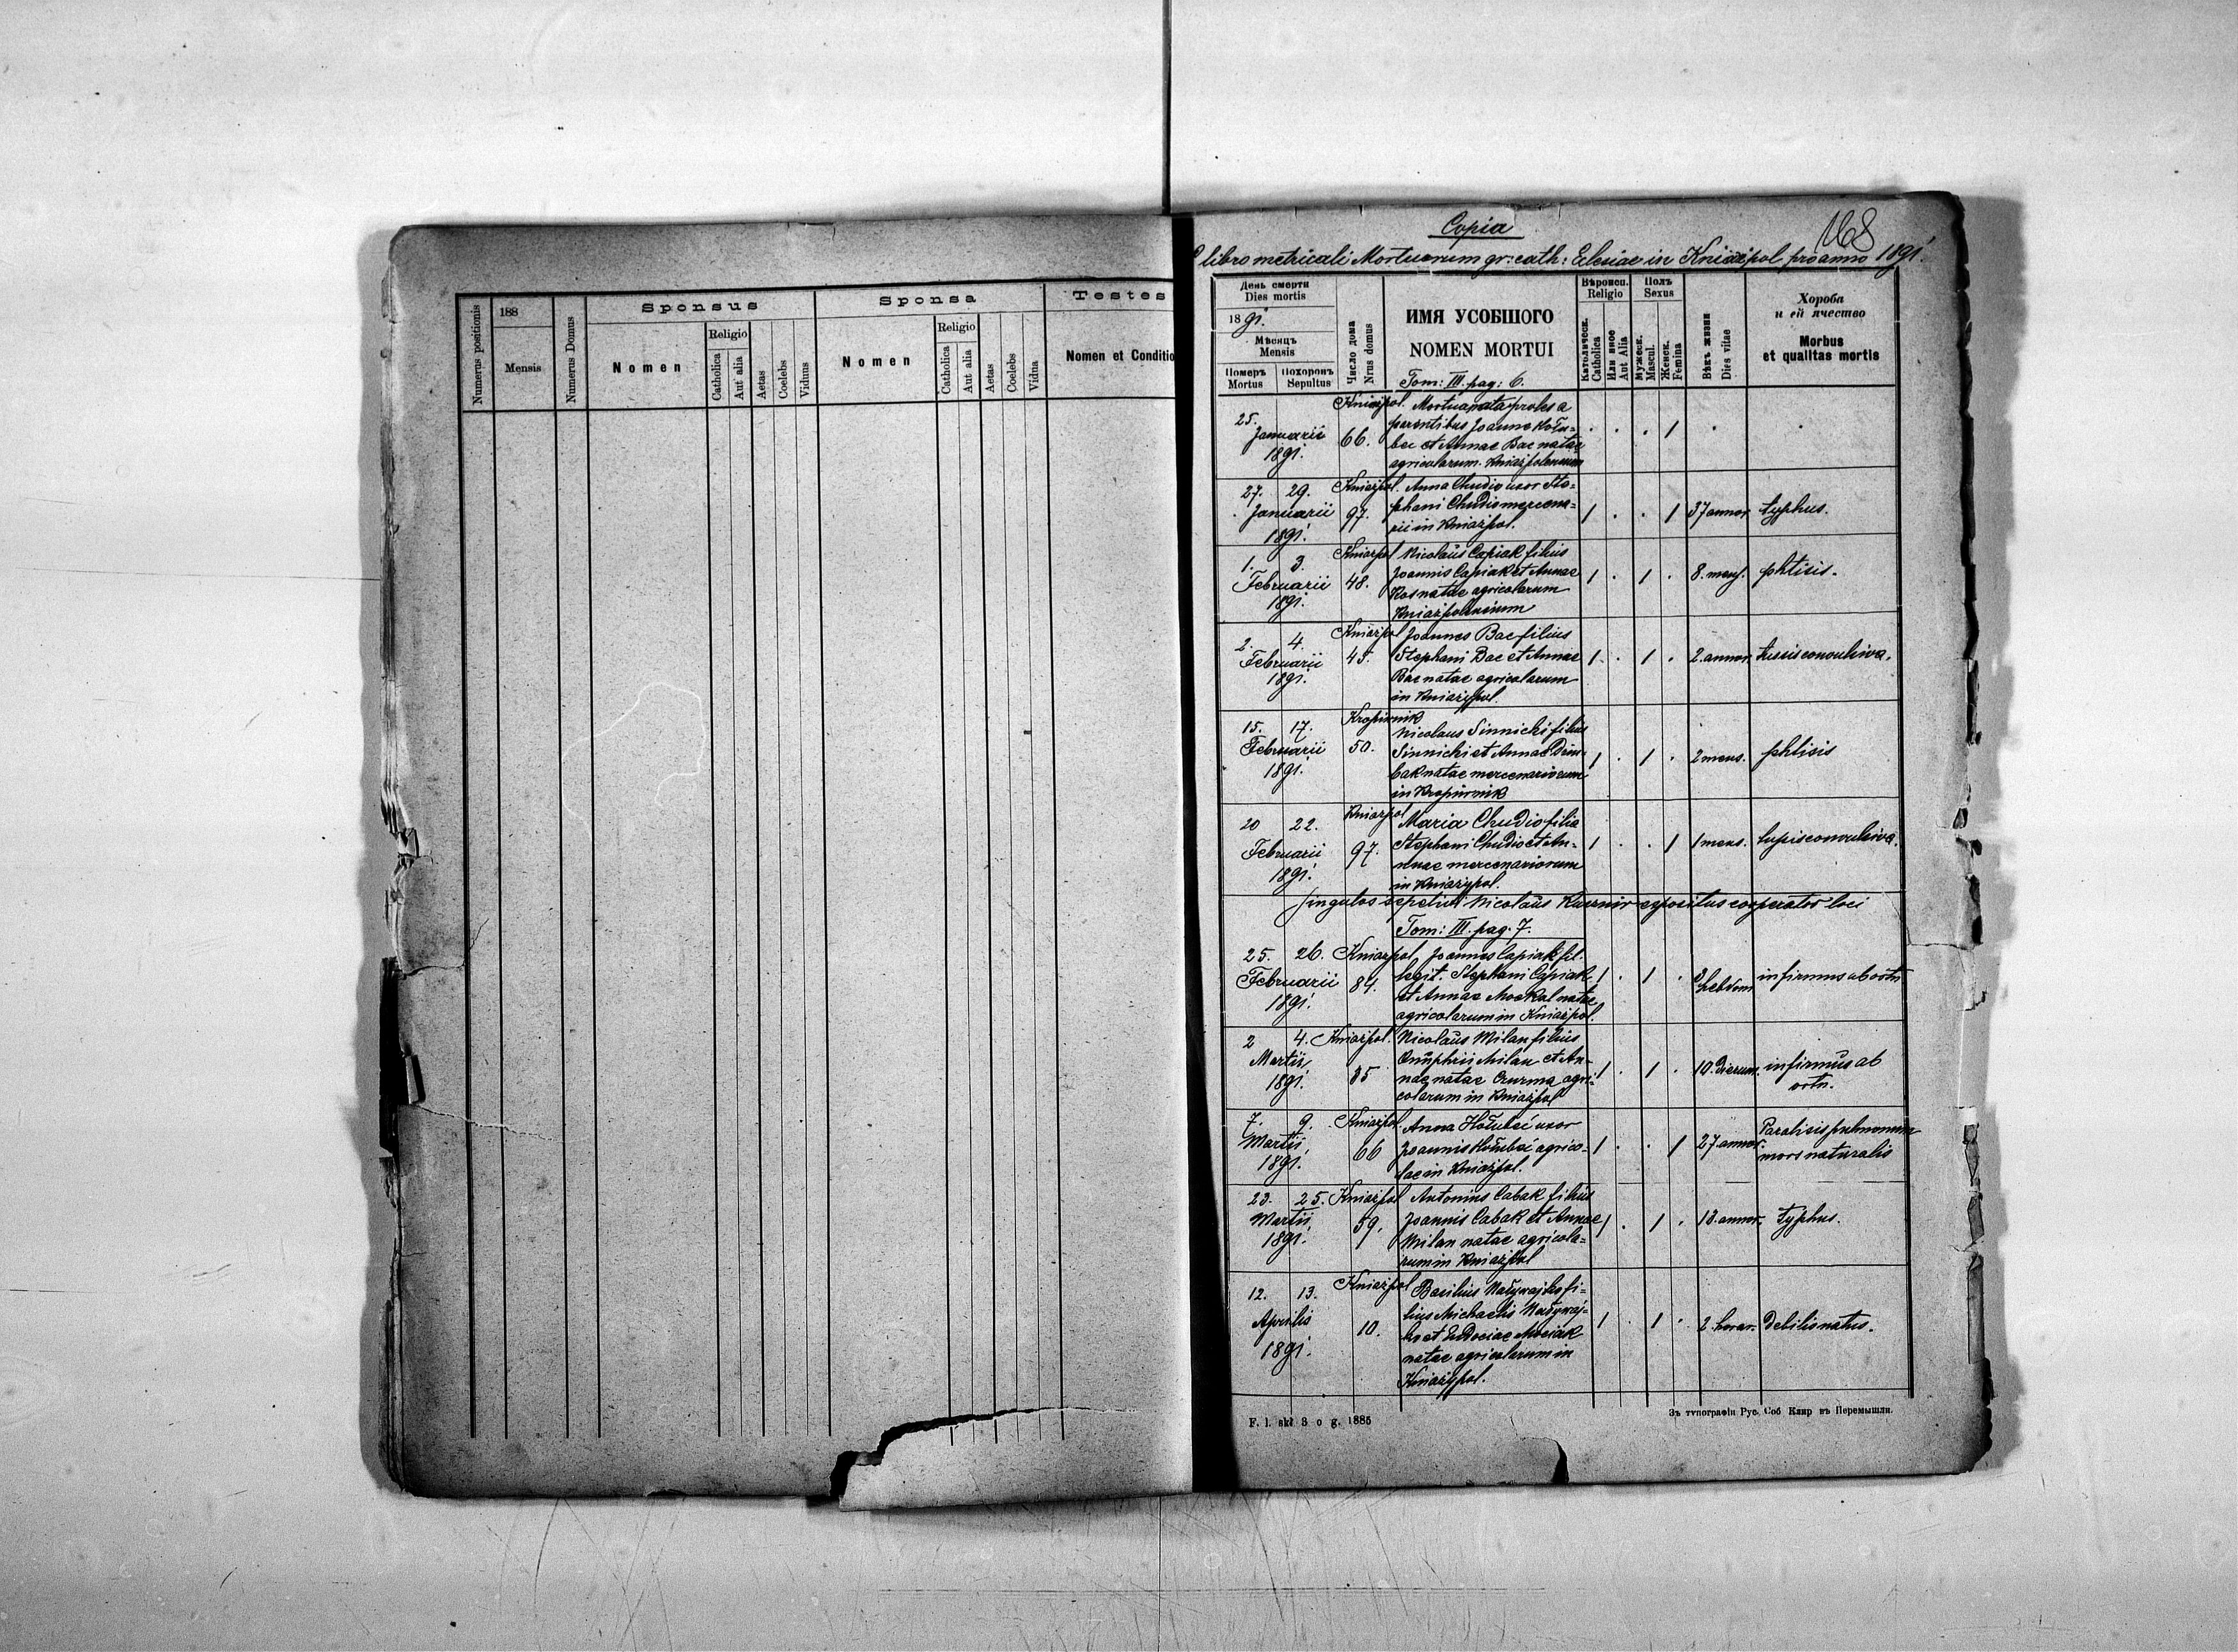 Numerus positionis
188
Mensis
Numerus Domus
Sponsus
Nomen
Religio
Catholica
Aut alia
Aetas
Coelebs
Viduus
Sponsa
Nomen
Religio
Catholica
Aut alia
Aetas
Coelebs
Vidua
Testes
Nomen et Conditio
Copia
168
libro metricali Mortuorum gr: cath: Eclesiae in Kniażpol pro anno 1891.
День смерти
Dies mortis
1891.
Мѣсяцъ
Mensis
Померъ
Mortus
Похоронъ
Sepultus
Число дома
Nrus domus
ИМЯ УСОБШОГО
NOMEN MORTUI
Tom: III. pag: 6.
Вѣроисп.
Religio
Католическ.
Catholica
Или иное
Aut Alia
Полъ
Sexus
Мужеск.
Mascul.
Женск.
Femina
Вѣкъ жизни
Dies vitae
Хороба
и ей ячество
Morbus
et qualitas mortis
Kniażpol. Mortua nata proles a
25. parentibus Joanne Hołu-
Januarii 66. bec et Annae Bac natae 1
1891. agricolarum Kniażpolensium
27. 29. Kniażpol. Anna Chudio uxor Ste-
Januarii 97. phani Chudio mercena- 1 1 37 annor. typhus.
1891. rii in Kniażpol.
1. 3. Kniażpol Nicolaüs Capiak filius
Februarii 48. Joannis Capiak et Annae 1 1 8. mens. phtisis.
1891. Kos natae agricolarum
Kniażpolensium
2. 4. Kniażpol Joannes Bac filius
Februarii 45. Stephani Bac et Annae 1 1 2. annor. tussis convulsiva.
1891. Bac natae agricolarum
in Kniażypol.
15. 17. Kropiwnik
Nicolaus Sinnicki filius
Februarii 50. Sinnicki et Annae 1 1 2 mens. phtisis
1891. natae mercenariorum
in Kropiwnik
20 22. Kniażpol Maria Chudio filia
Februarii 97. Stephani Chudio et An- 1 1 1 mens. tussis convulsiva.
1891. nae mercenariorum
in Kniażypol.
singulos sepelivit Nicolaüs expositus cooperator loci
Tom: III. pag. 7.
25. 26. Kniażpol Joannes Capiak fil.
Februarii 84. legit. Stephani Capiak 1 1 3 hebdom infirmus ab ortu
1891. et Annae natae
agricolarum in Kniażpol.
2 4. Kniażpol. Nicolaüs Milan filius
Martii Onüphrii Milan et An- 1 1 10. dierum. infirmüs ab
1891. 35 nae natae Czurma agri- ortu.
colarum in Kniażpol
7. 9. Kniażpol Anna Hołubeć uxor
Martii 66 Joannis Hołubeć agrico- 1 1 27 annor. Paralisis pulmonum
1891. lae in Kniażpol. mors naturalis
23. 25. Kniażpol Antonius Cabak filiüs
Martii 59. Joannis Cabak et Annae 1 1 13. annor. typhus.
1891. Milan natae agricola-
rum in Kniażpol
12. 13. Kniażpol Basilius Naływajko fi-
Aprilis 10. lius Michaelis Naływaj- 1 1 2. horar. debilis natus.
1891. ko et Eudociae Mociak
natae agricolarum in
Kniażypol.
F. l. skł 3 o g. 1885
Зъ типографіи Рус. Соб Клир въ Перемышли.